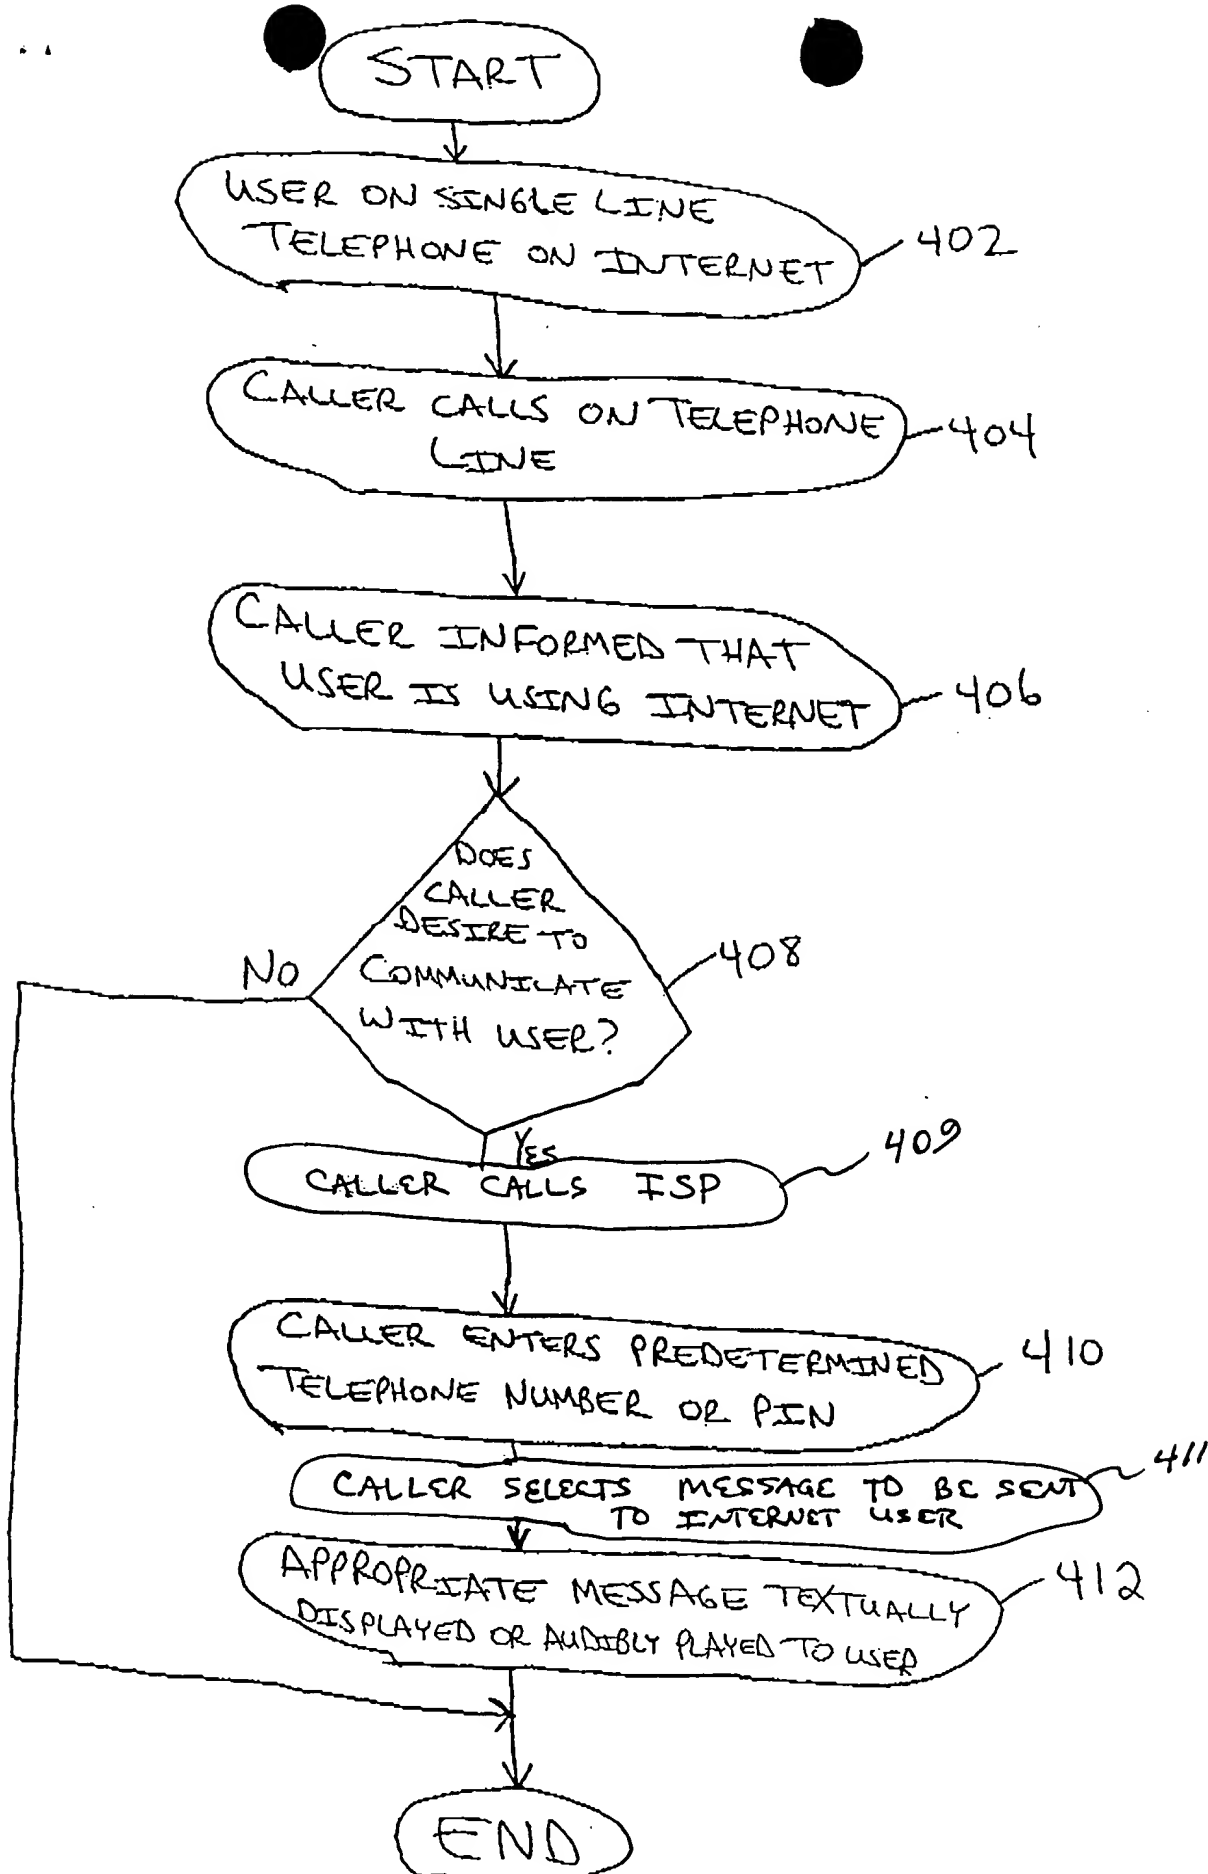 START
USER ON SINGLE LINE
TELEPHONE ON INTERNET
402
CALLER CALLS ON TELEPHONE
LINE
404
CALLER INFORMED THAT
USER IS USING INTERNET
406
DOES
CALLER
DESIRE TO
COMMUNICATE
WITH USER?
NO
408
YES
409
CALLER CALLS ISP
CALLER ENTERS PREDETERMINED
TELEPHONE NUMBER OR PIN
410
CALLER SELECTS MESSAGE TO BE SENT
TO INTERNET USER
411
APPROPRIATE MESSAGE TEXTUALLY
DISPLAYED OR AUDIBLY PLAYED TO USER
412
END